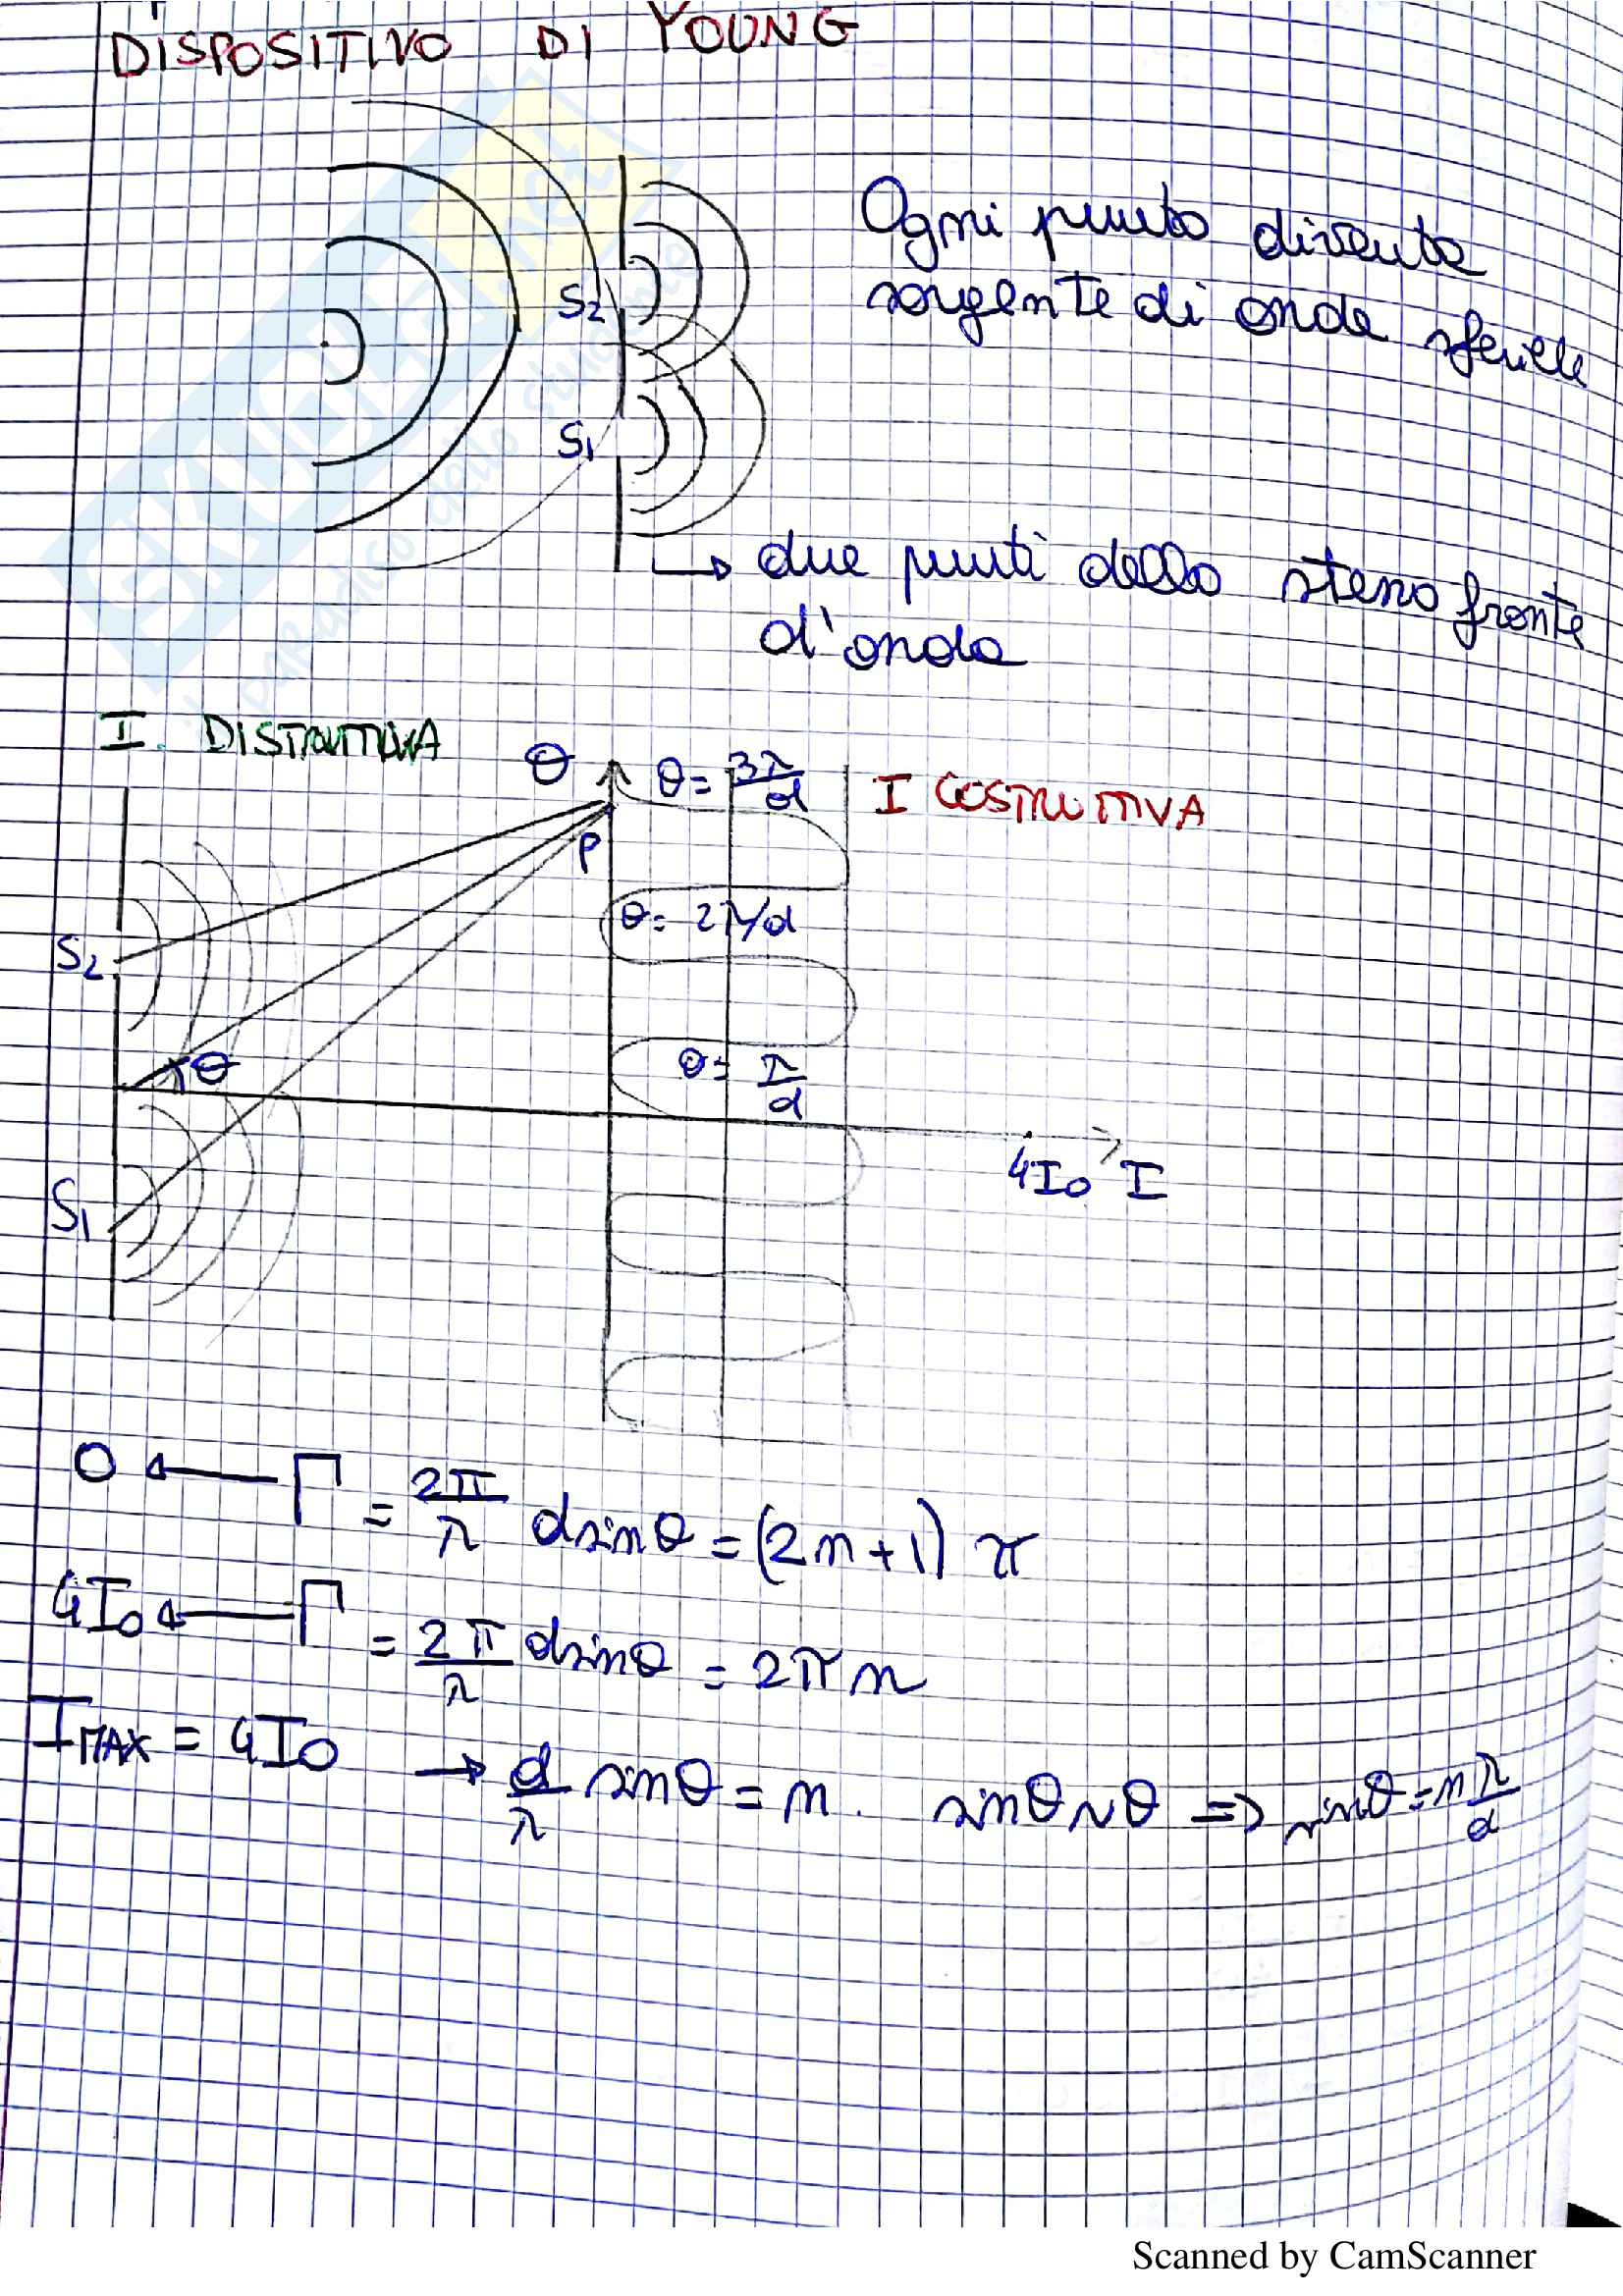 DISPOSITIVO DI YOUNG
Ogni punto diventa
sorgente di onde sferiche
S2
S1
→ due punti dello stesso fronte
d'onda
I. DISTRUTTIVA
θ
θ = 3λ/d
I COSTRUTTIVA
P
θ = 2λ/d
S2
θ
θ = λ/d
4I0 I
S1
0 ← Γ = 2π/λ d sinθ = (2n+1) π
4I0 ← Γ = 2π/λ d sinθ = 2πn
IMAX = 4I0 → d/λ sinθ = n. sinθ ~ θ => sinθ = n λ/d
SKUOLA.net
il paradiso dello studente
Scanned by CamScanner